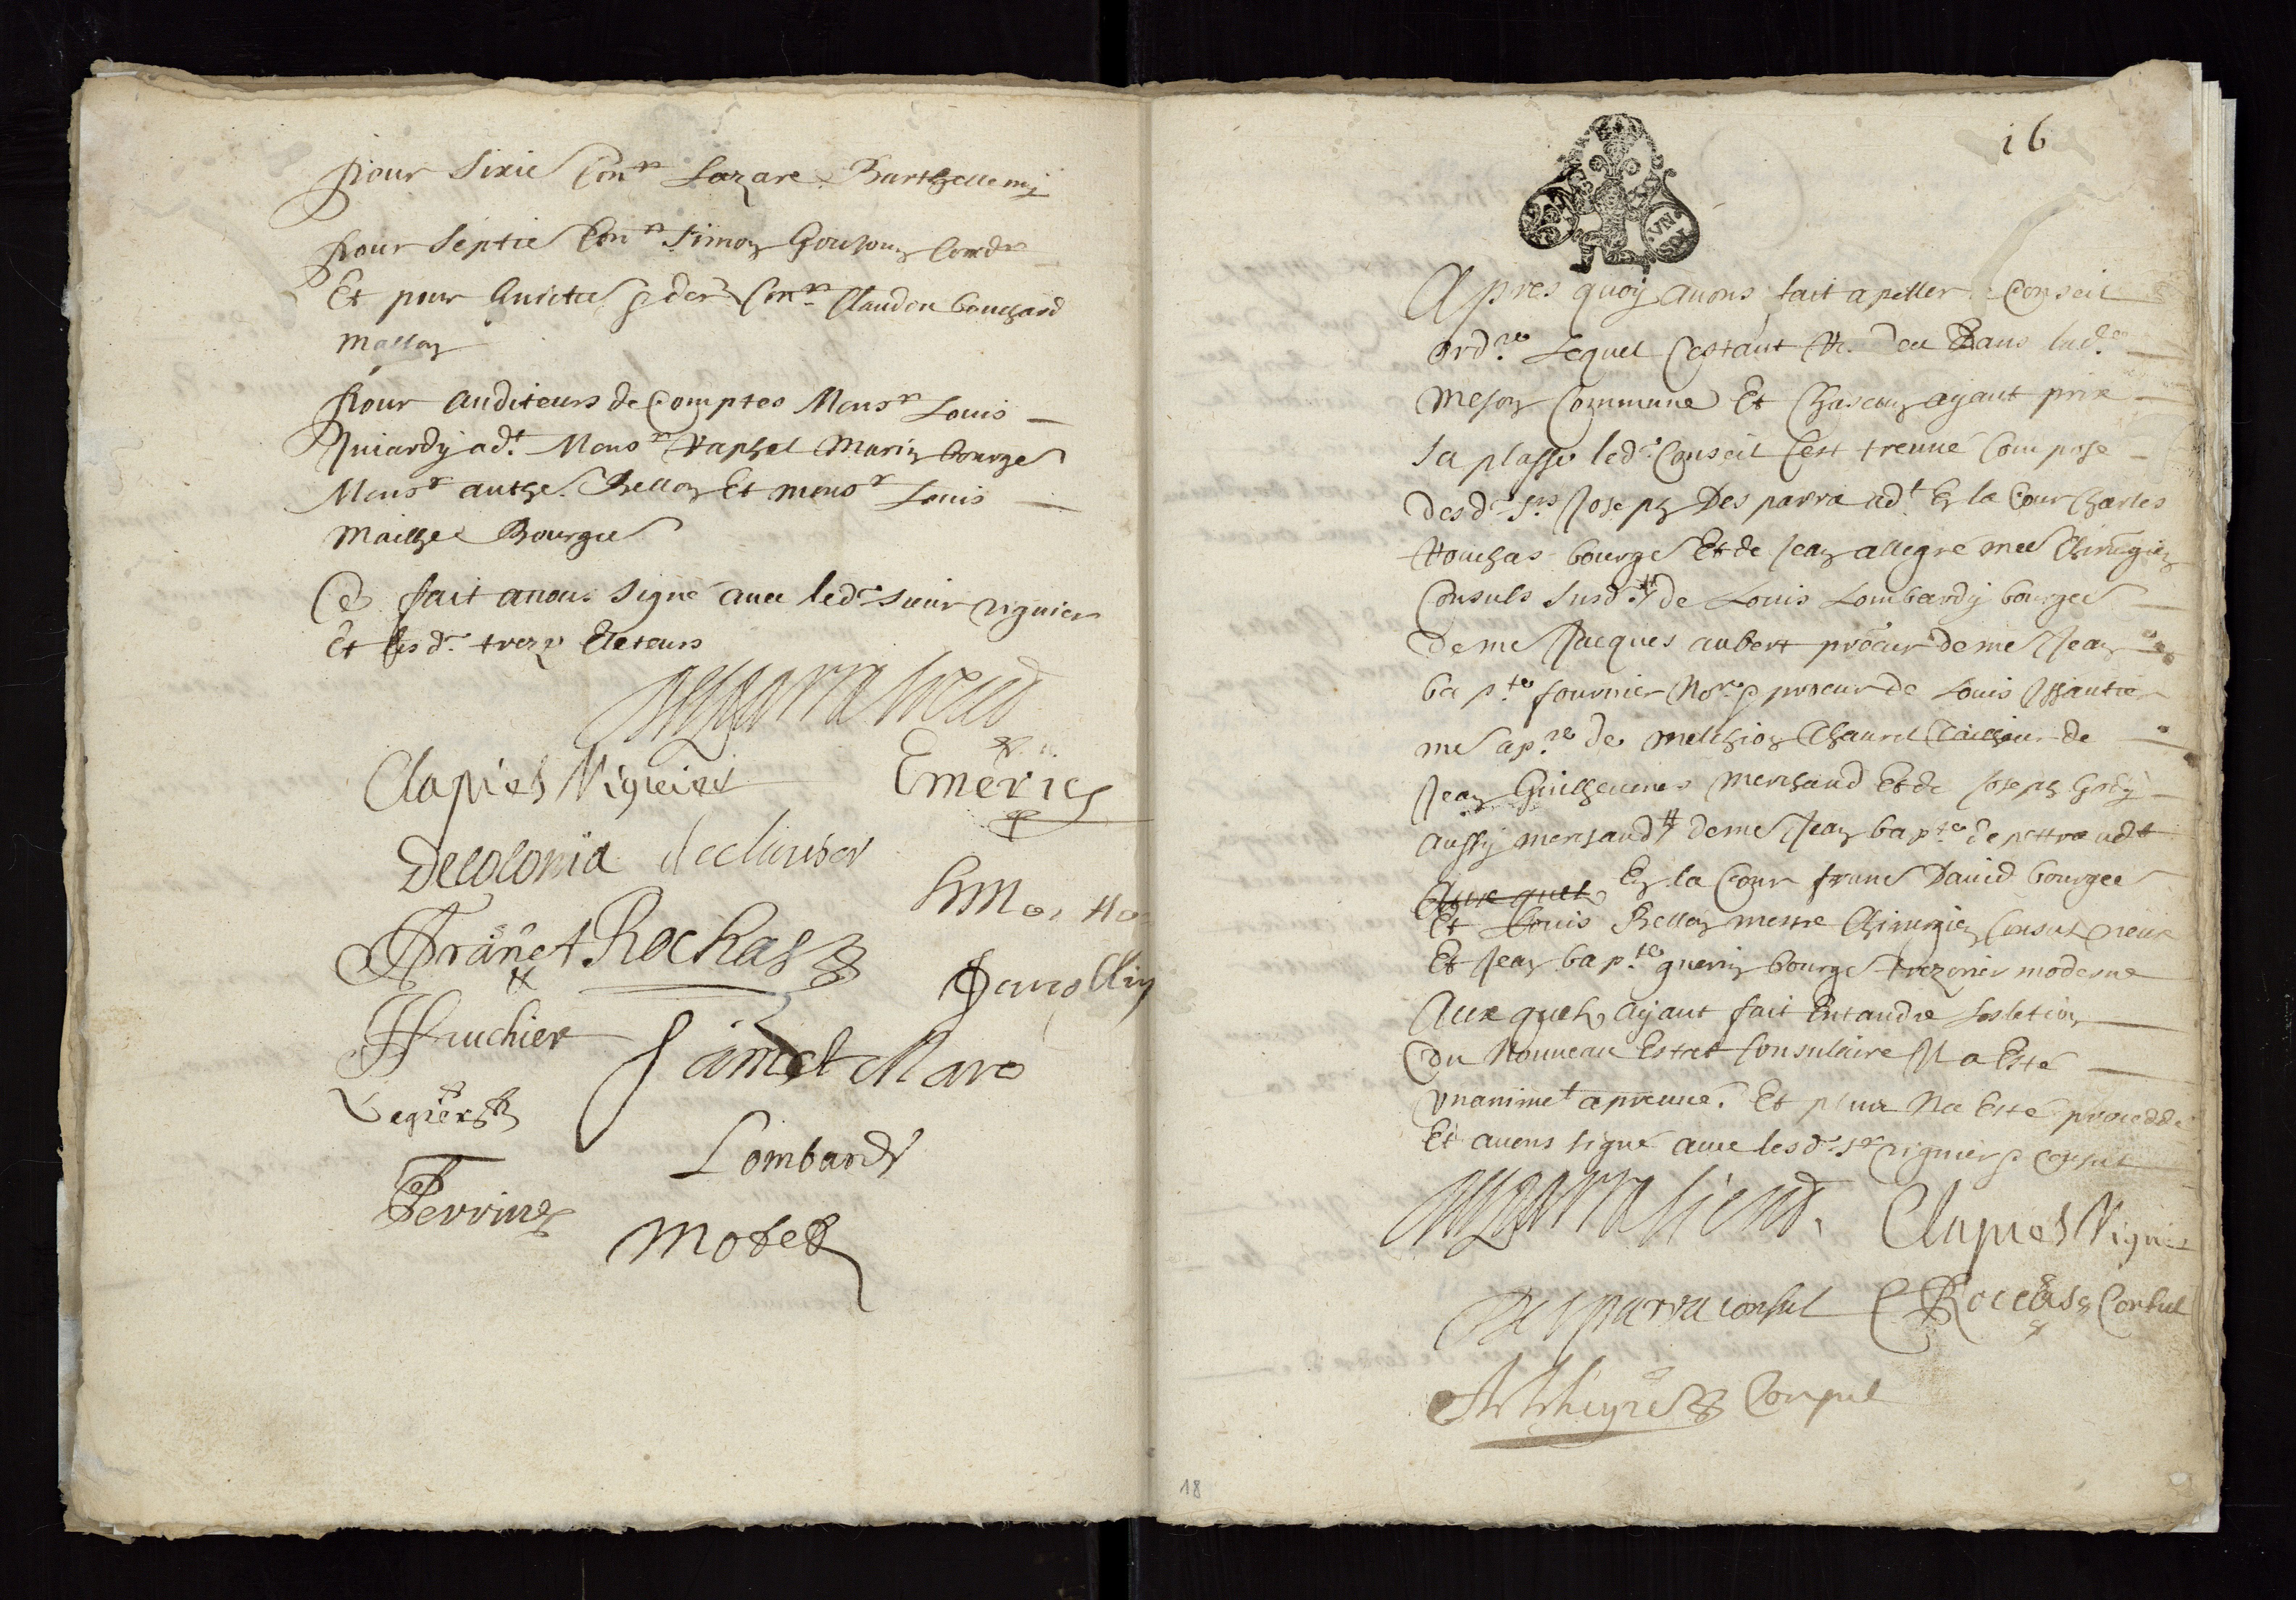 Pour sixie Con.rs Lazare Barthellemy
Pour septie Con.rs Simon Goujon Cord.r
Et pour huictie & der Con.rs Claudon bouchard
masson
Pour auditeurs de Comptes Mons.r Louis
ad.t Mons.r Raphel Marin bourge
Mons.r anthe. Bellon Et mons.r Louis
Mailhe Bourgie
Ce fait avons signé avec led. sieur viguier
Et les d. treze Eleteurs
Clapiers Viguier
Emeric
Decolonia
Franc
Rochas
Fauchier
Marc
Legier
Lombard
Perrin
Motet
16
VN SOL
Apres quoy avons fait apeller Conseil
ord.re Lequel Cestant dans lad.e
meson Commune Et Chascun ayant prix
sa plasse led. Conseil sest treuvé Compose
des d. srs Joseph Desparra ad.t En la Cour Charles
Rouchas bourge Et de Jean allegre me Chirugien
Consuls susd. # de Louis Lombardy bourge
de me Jacques aubert procur de me Jean
bap.te fournier No.re & procur de Louis
me ap.re de melchion Chauvet Tailheur de
Jean Guilheume merchand Et de Joseph
aussy merchand # de me Jean bap.te ad.t
Auxquels En la Cour franc David bourgee
Et Louis Bellon mestre Chirugien Consul neuf
Et Jean bap.te guerin bourge trezorier moderne
Auxquels ayant fait Entandre
du Nouveau Estat Consulaire Il a Esté
unanime.t apreuvé. Et plus Na Esté procedde
Et avons signe avec les d. sr viguier & Consul
Clapiers Viguier
Desparra consul
Rochas Consul
Consul
18